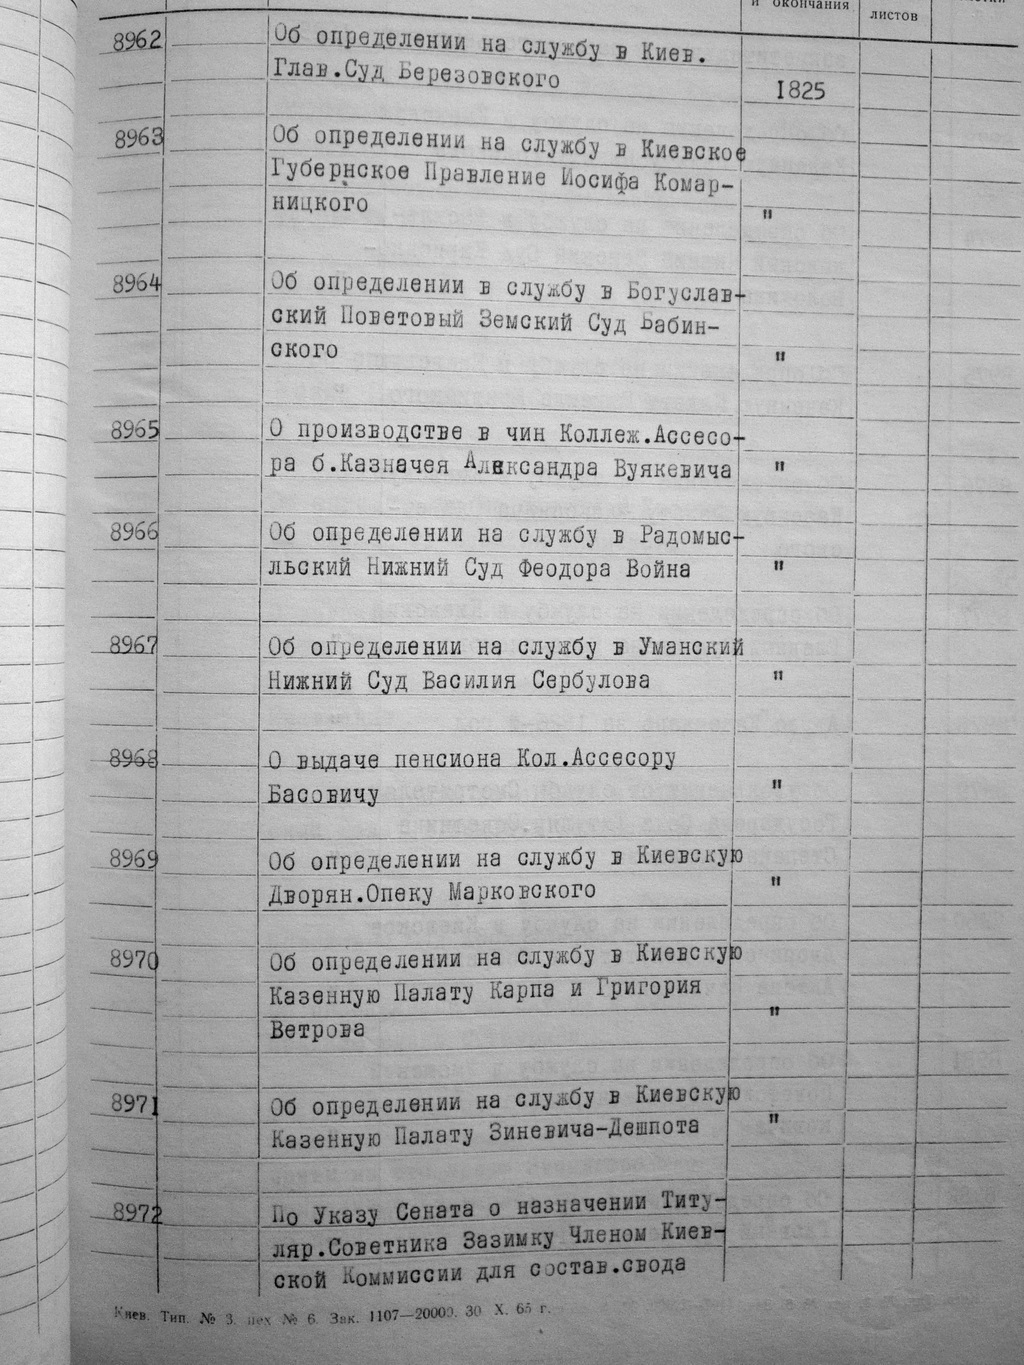 и окончания
листов
8962 Об определении на службу в Киев.
Глав.Суд Березовского
1825
8963 Об определении на службу в Киевское
Губернское Правление Иосифа Комар-
ницкого "
8964 Об определении в службу в Богуслав-
ский Поветовый Земский Суд Бабин-
ского "
8965 О производстве в чин Коллеж.Ассесо-
ра б.Казначея Александра Вуякевича "
8966 Об определении на службу в Радомыс-
льский Нижний Суд Феодора Война "
8967 Об определении на службу в Уманский
Нижний Суд Василия Сербулова "
8968 О выдаче пенсиона Кол.Ассесору
Басовичу "
8969 Об определении на службу в Киевскую
Дворян.Опеку Марковского "
8970 Об определении на службу в Киевскую
Казенную Палату Карпа и Григория
Ветрова "
8971 Об определении на службу в Киевскую
Казенную Палату Зиневича-Дешпота "
8972 По Указу Сената о назначении Титу-
ляр.Советника Зазимку Членом Киев-
ской Коммиссии для состав.свода
Киев. Тип. № 3. цех № 6. Зак. 1107—20000. 30 X. 65 г.